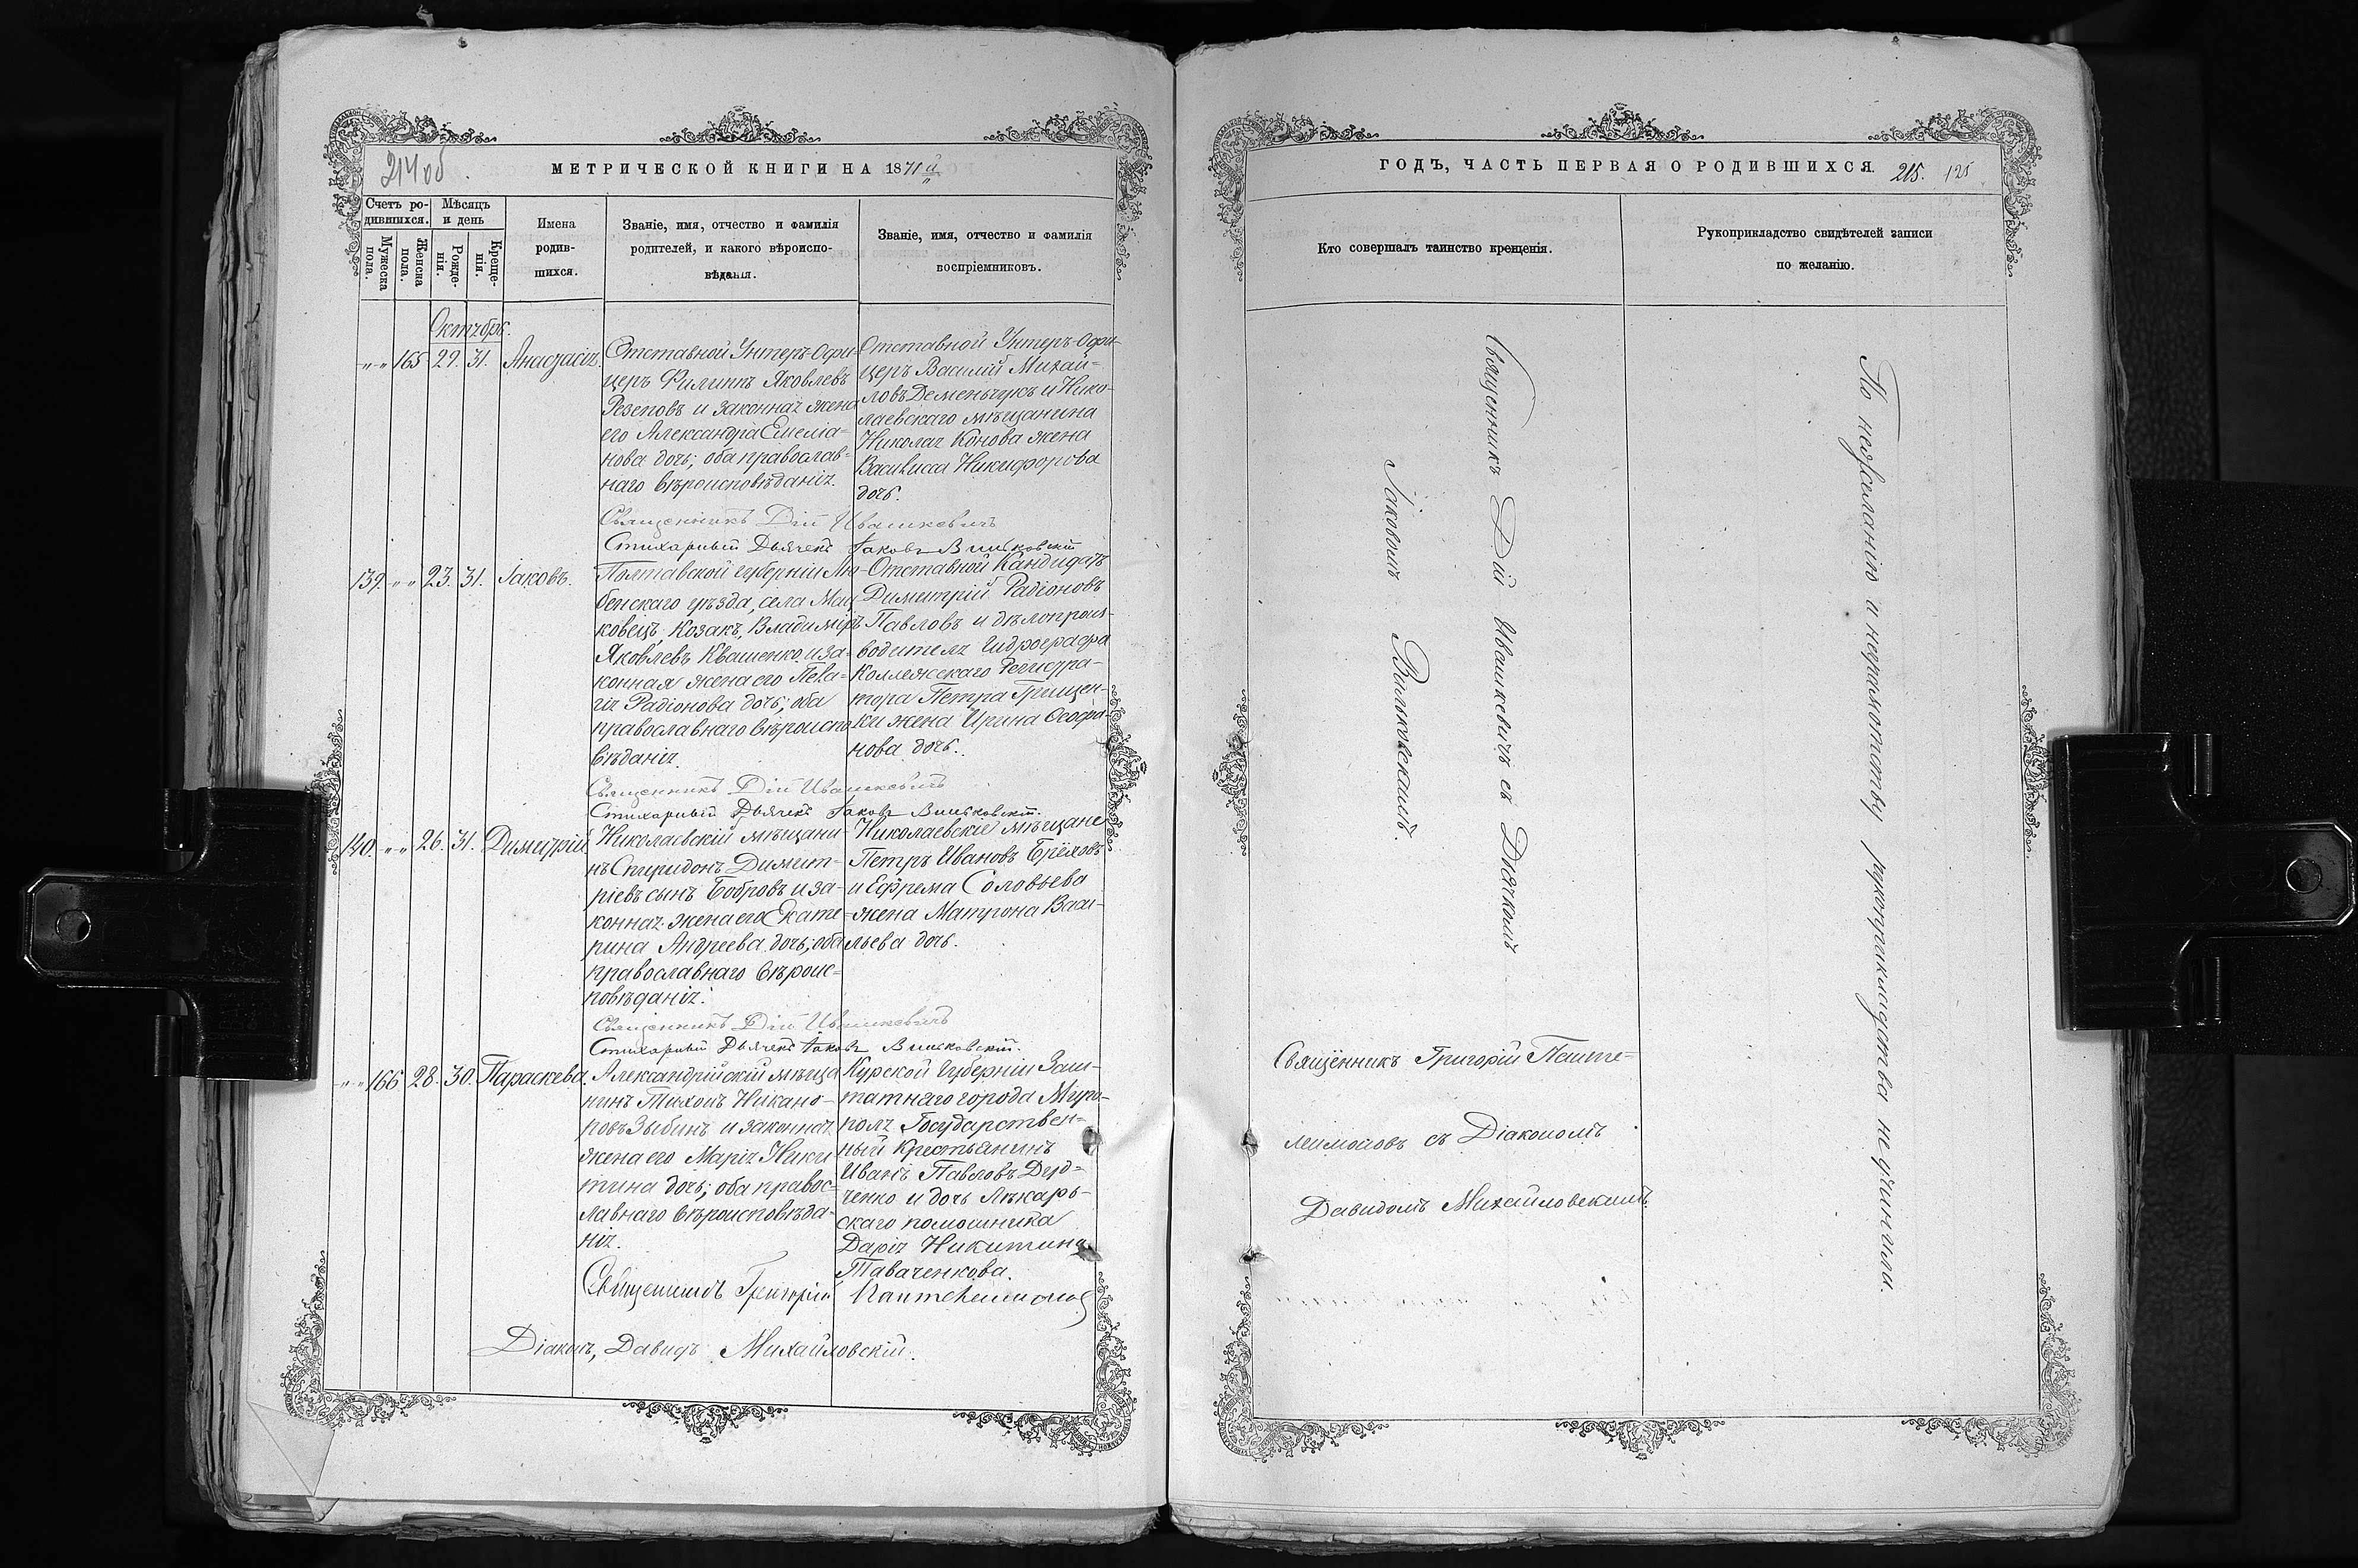 214 об
МЕТРИЧЕСКОЙ КНИГИ НА 1871й
Счетъ ро-
дившихся.
Мѣсяцъ
и день
Мужеска
пола.
Женска
пола.
Рожде-
нія.
Креще-
нія.
Имена
родив-
шихся.
Званіе, имя, отчество и фамилія
родителей, и какого вѣроиспо-
вѣданія.
Званіе, имя, отчество и фамилія
воспріемниковъ.
Октября.
„ „ 165 29. 31. Анастасія.
Отставной Унтеръ-Офи-
церъ Филиппъ Яковлевъ
Резеповъ и законная жена
его Александра Емелiа-
нова дочь; оба православ-
наго вѣроисповѣданія.
Отставной Унтеръ-Офи-
церъ Василій Михай-
ловъ Деменьчукъ и Нико-
лаевскаго мѣщанина
Николая Конова жена
Василисса Никифорова
дочь.
Священникъ Дій Ивашкевичъ
Стихарный Дьячекъ Іаковъ Вильковскій
139. „ „ 23. 31. Іаковъ.
Полтавской губерніи Лу-
бенскаго уѣзда, села Мац-
ковецъ, Козакъ, Владиміръ
Яковлевъ Квашенко и за-
конная жена его Пела-
гія Радіонова дочь; оба
православнаго вѣроиспо-
вѣданія.
Отставной Кандидатъ
Димитрій Радіоновъ
Павловъ и дѣлопроиз-
водителя Гидрографа
Коллежскаго Регистра-
тора Петра Грищен-
ки жена Ирина Ѳеофа-
нова дочь.
Священникъ Дій Ивашкевичъ
Стихарный Дьячекъ Іаковъ Вильковскій.
140. „ „ 26. 31. Димитрій.
Николаевскій мѣщани-
нъ Спиридонъ Димит-
ріевъ сынъ Бобровъ и за-
конная жена его Екате-
рина Андреева дочь; оба
православнаго вѣроис-
повѣданія.
Николаевскіе мѣщане
Петръ Ивановъ Брёховъ
и Ефрема Соловьева
жена Матрона Васи-
льева дочь.
Священникъ Дій Ивашкевичъ
Стихарный Дьячекъ Іаковъ Вильковскій.
„ „ 166 28. 30. Параскева.
Александрійскій мѣща-
нинъ Тихонъ Никано-
ровъ Зыбинъ и законная
жена его Марія Ники-
тина дочь; оба правос-
лавнаго вѣроисповѣда-
нія.
Курской Губерніи Заш-
татнаго города Миро-
поля Государствен-
ный Крестьянинъ
Иванъ Павловъ Дуд-
ченко и дочь Лѣкарь-
скаго помошника
Дарія Никитина
Таваченкова.
Священникъ Григорій Пантелеимоновъ
Діаконъ, Давидъ Михайловскій.
ГОДЪ, ЧАСТЬ ПЕРВАЯ О РОДИВШИХСЯ.
215. 125
Кто совершалъ таинство крещенія.
Рукоприкладство свидѣтелей записи
по желанію.
Священникъ Дій Ивашкевичъ съ Дьячкомъ
Іаковомъ Вильковскимъ.
По нежеланію и неграмотству рукоприкладства не учинили.
Священникъ Григорій Панте-
леимоновъ съ Діакономъ
Давидомъ Михайловскимъ.